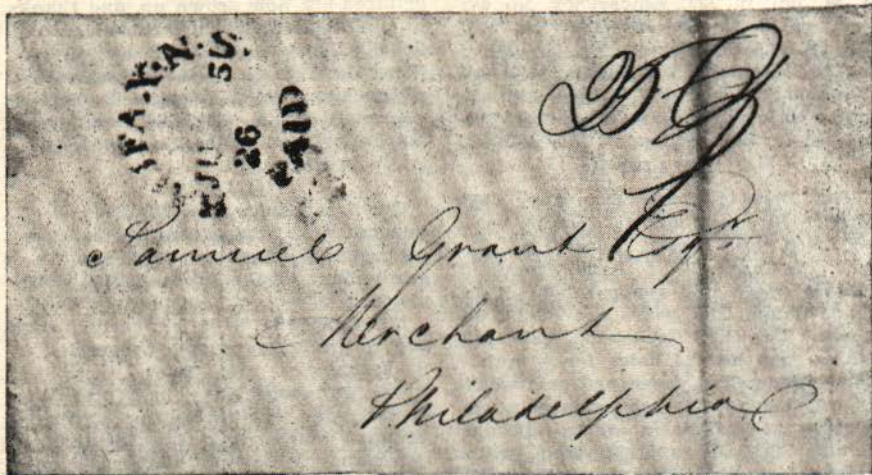 JU
26
PAID
Samuel Grant Esqr
Merchant
Philadelphia